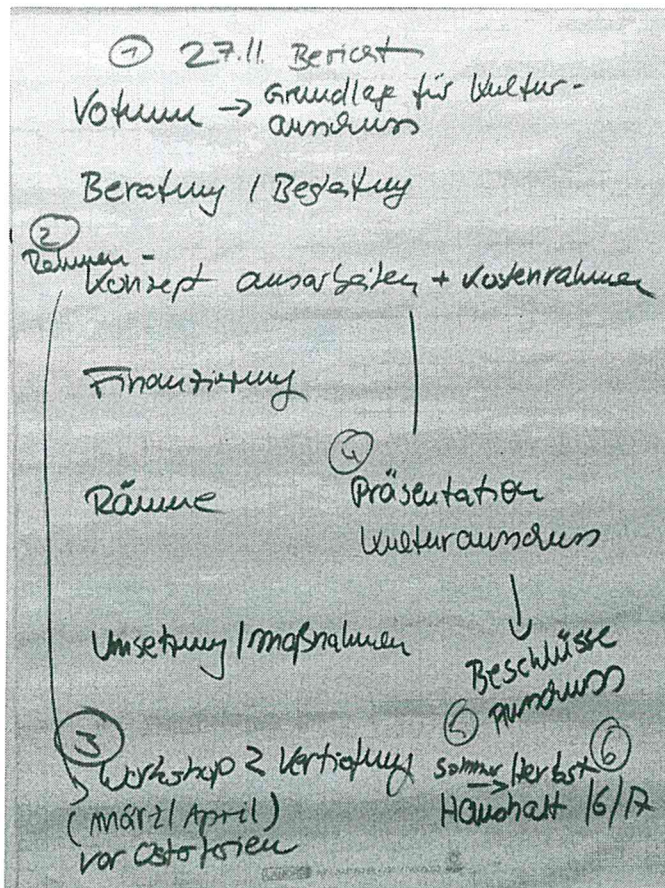 ① 27.11. Bericht
Votum → Grundlage für Kultur-
ausschuss
Beratung / Begleitung
②
Rahmen-
Konzept ausarbeiten + Kostenrahmen
Finanzierung
④
Räume
Präsentation
Kulturausschuss
Umsetzung / Maßnahmen
Beschlüsse
Ausschuss
③
Workshop 2 Vertiefung
(März / April)
vor Osterferien
⑤
Sommer / Herbst ⑥
→
Haushalt 16/17